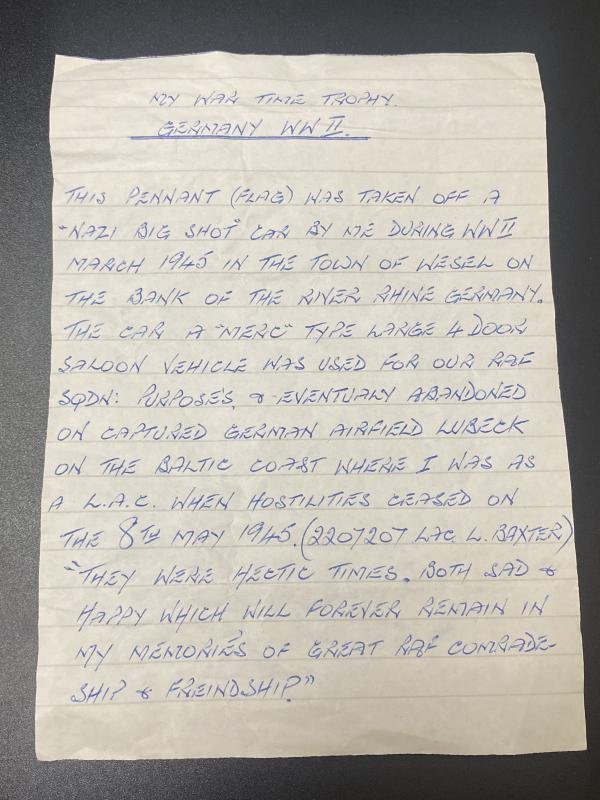 MY WAR TIME TROPHY.
GERMANY WW II.
THIS PENNANT (FLAG) WAS TAKEN OFF A
"NAZI BIG SHOT" CAR BY ME DURING WW II
MARCH 1945 IN THE TOWN OF WESEL ON
THE BANK OF THE RIVER RHINE GERMANY.
THE CAR A "MERC" TYPE LARGE 4 DOOR
SALOON VEHICLE WAS USED FOR OUR RAF
SQDN: PURPOSE'S, & EVENTUALY ABANDONED
ON CAPTURED GERMAN AIRFIELD LUBECK
ON THE BALTIC COAST WHERE I WAS AS
A L.A.C. WHEN HOSTILITIES CEASED ON
THE 8TH MAY 1945. (2207207 LAC. L. BAXTER)
"THEY WERE HECTIC TIMES. BOTH SAD &
HAPPY WHICH WILL FOREVER REMAIN IN
MY MEMORIE'S OF GREAT RAF COMRADE-
SHIP & FREINDSHIP."